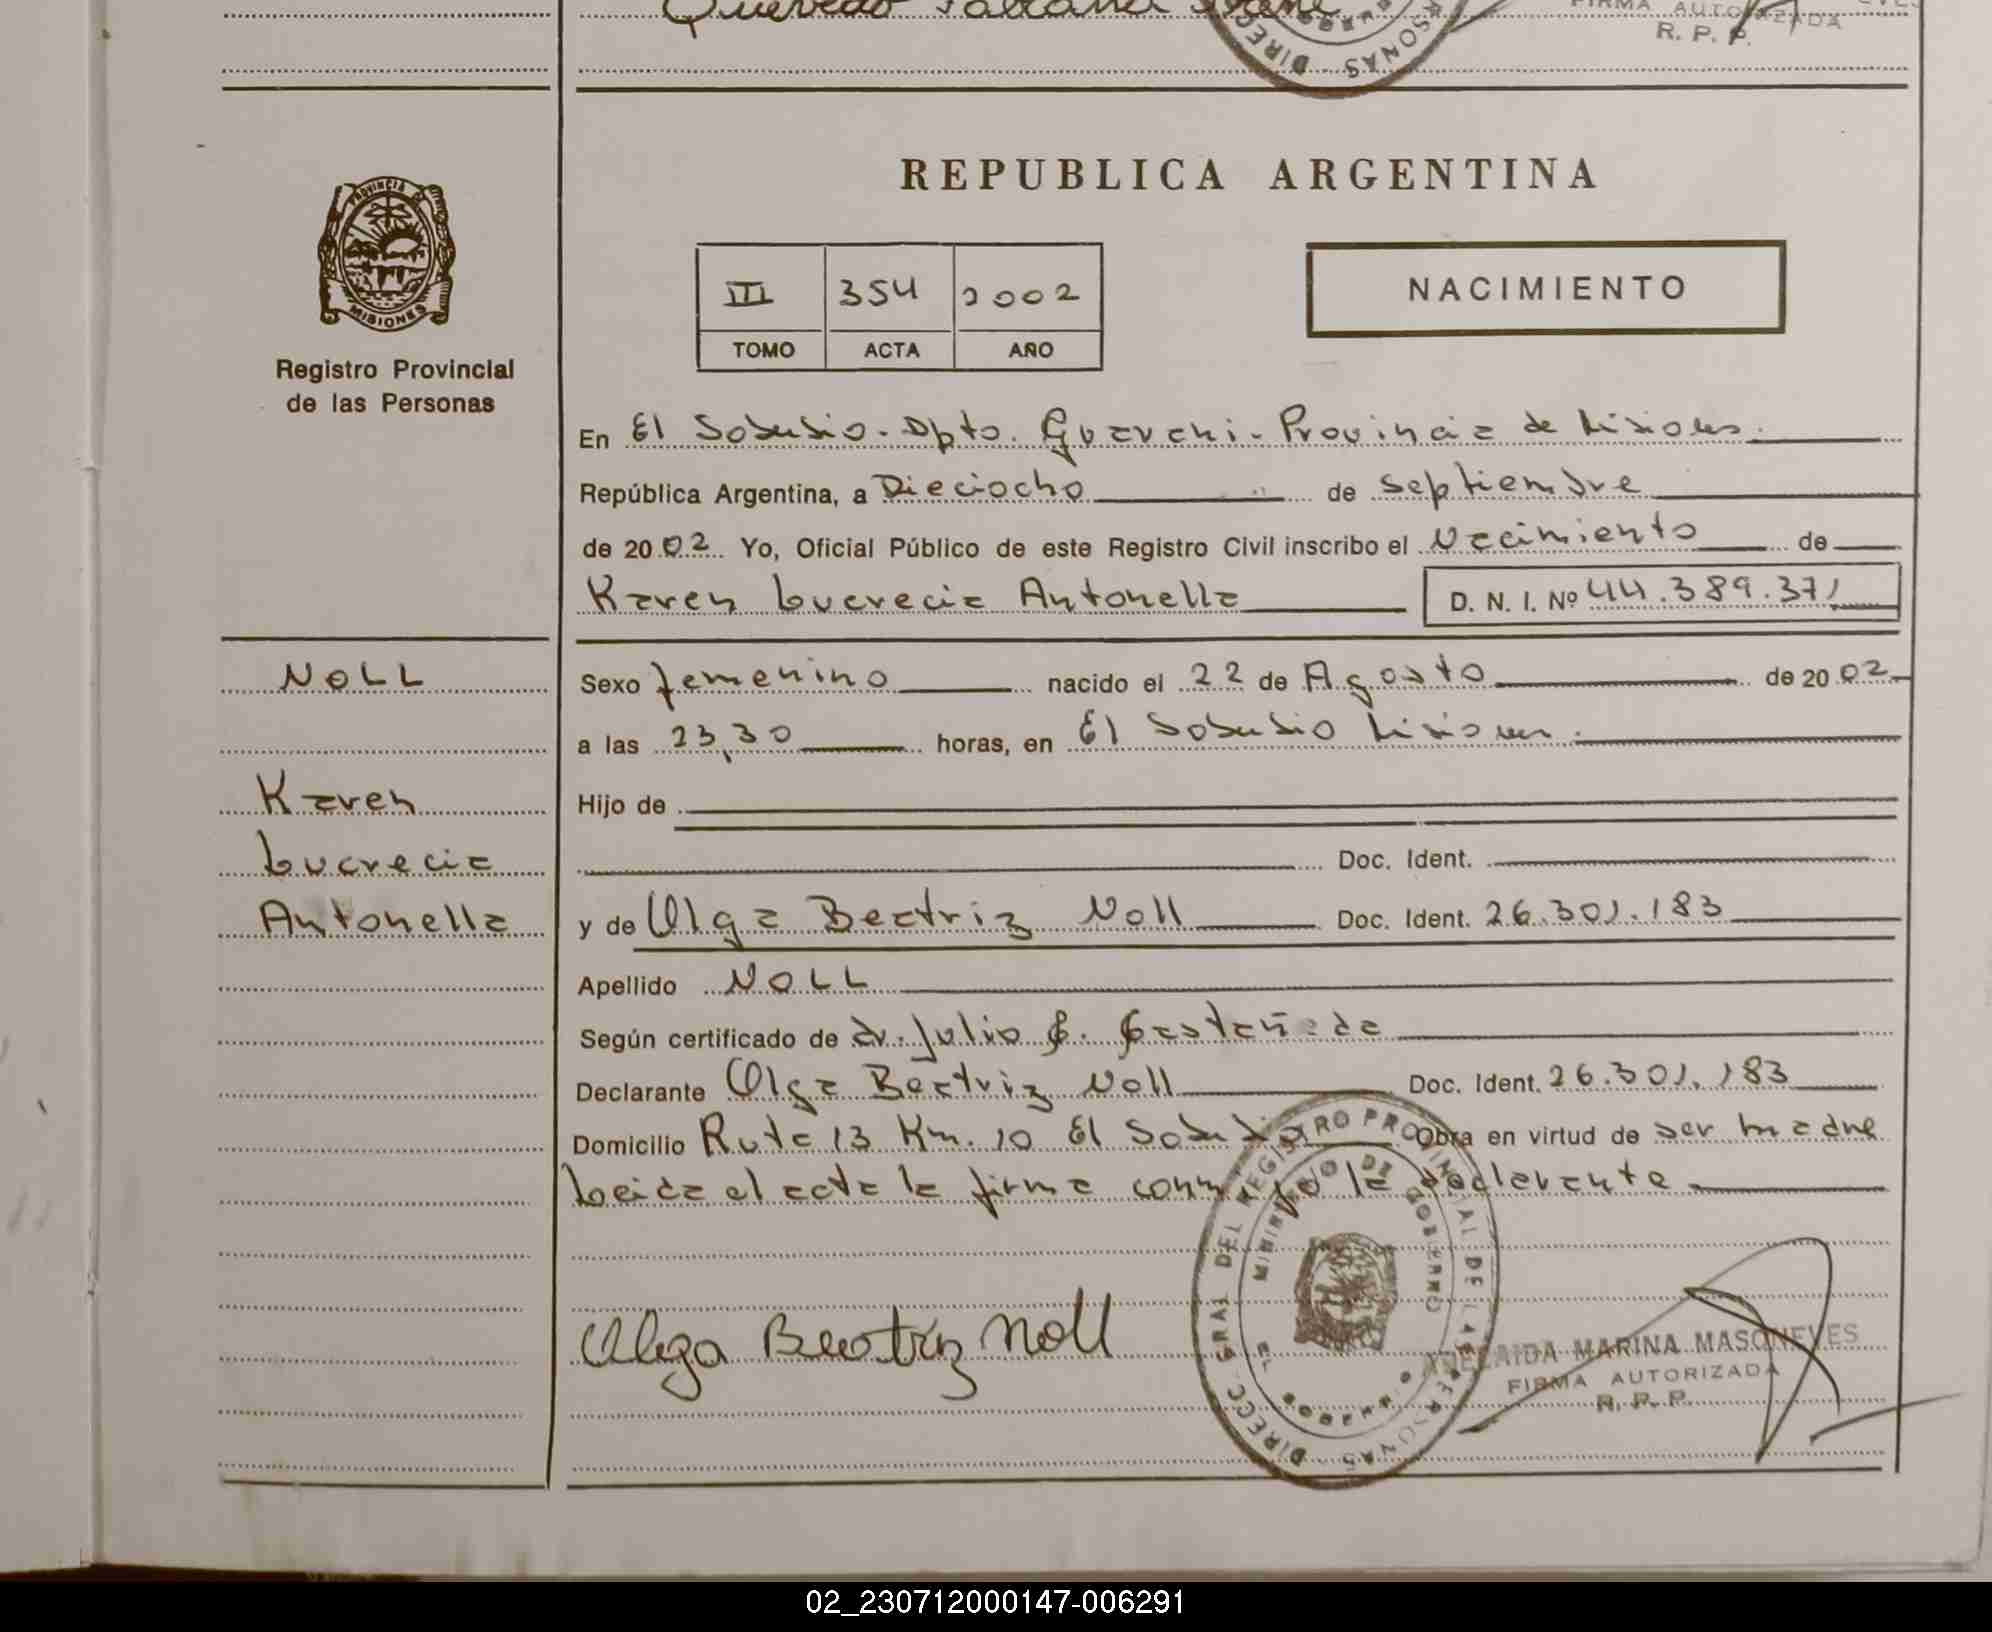 Quevedo
DIREC PERSONAS
FIRMA AUTORIZADA
R. P. P.
REPUBLICA ARGENTINA
PROVINCIA DE
MISIONES
Registro Provincial
de las Personas
III 354 2002
TOMO ACTA AÑO
NACIMIENTO
En El Soberbio - Dpto. Guarani - Provincia de Misiones.
República Argentina, a Dieciocho de septiembre
de 2002 Yo, Oficial Público de este Registro Civil inscribo el Nacimiento de
Karen Lucrecia Antonella D. N. I. Nº 44.389.371
NOLL
Karen
Lucrecia
Antonella
Sexo femenino nacido el 22 de Agosto de 2002
a las 23,30 horas, en El Soberbio Misiones.
Hijo de
Doc. Ident.
y de Olga Beatriz Noll Doc. Ident. 26.301.183
Apellido NOLL
Según certificado de dr. Julio C. Castañeda
Declarante Olga Beatriz Noll Doc. Ident. 26.301.183
Domicilio Ruta 13 Km. 10 El Soberbio Obra en virtud de ser madre
Leida el acta la firma conmigo la declarante
Olga Beatriz Noll
DIRECC. GRAL. DEL REGISTRO PROVINCIAL DE LAS PERSONAS
MINISTERIO DE GOBIERNO
EL SOBERBIO
ADELAIDA MARINA MASONEVES
FIRMA AUTORIZADA
R. P. P.
02_230712000147-006291